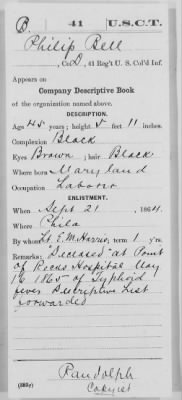 B | 41 | U.S.C.T.
Philip Bell
, Co. D, 41 Reg't U. S. Col'd Inf.
Appears on
Company Descriptive Book
of the organization named above.
DESCRIPTION.
Age 45 years; height 5 feet 11 inches.
Complexion Black
Eyes Brown; hair Black
Where born Maryland
Occupation Laborer
ENLISTMENT.
When Sept. 21, 1864.
Where Phila
By whom Lt. E. M. Harris, term 1 y'rs.
Remarks: "Deceased" at Point
of Rocks Hospital May
16 1865 of Typhoid
fever Descriptive List
forwarded
Randolph
Copyist